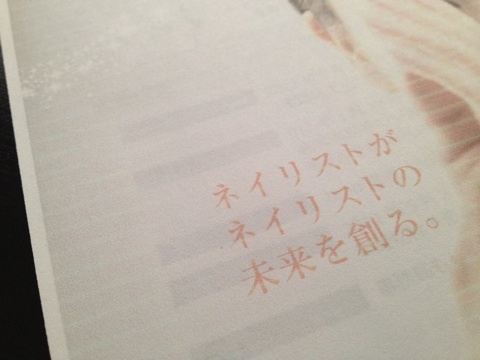 ネイリストが
ネイリストの
未来を創る。